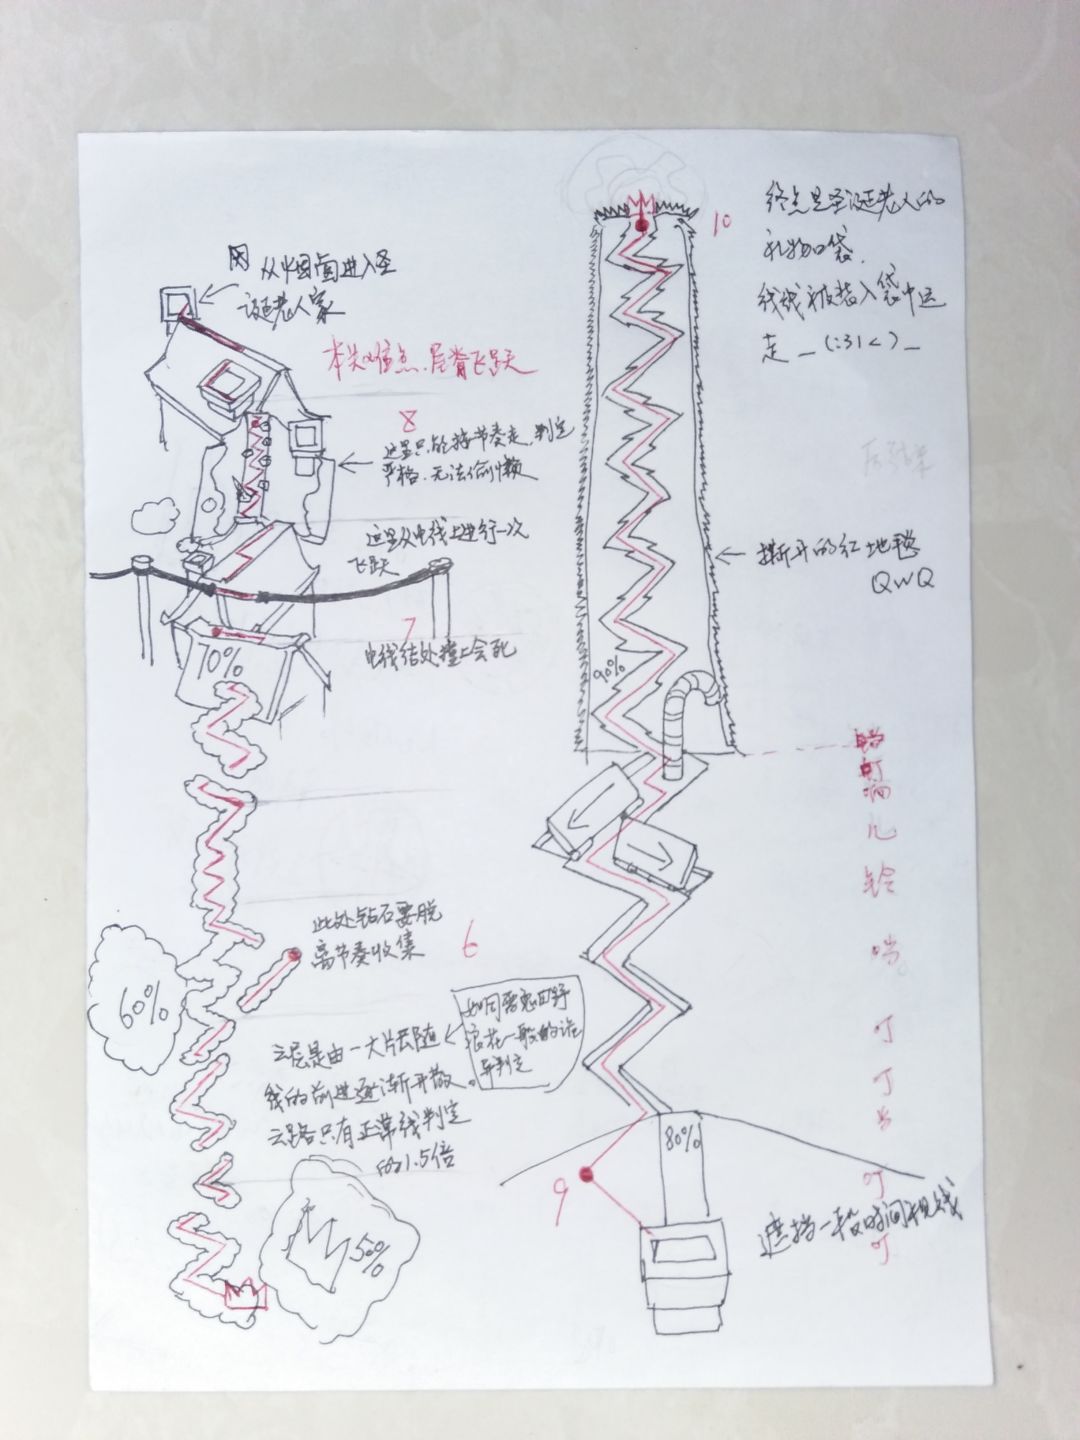 从烟囱进入圣
诞老人家
本关难点.屋脊飞跃
8
这里只能按节奏走,判定
严格,无法偷懒
这里从电线上进行一次
飞跃
7
电线结处撞上会死
70%
此处钻石要脱
离节奏收集
6
60%
云层是由一大片云随
线的前进逐渐开散。
云路只有正常线判定
的1.5倍
50%
终点是圣诞老人的
礼物口袋,
线线被装入袋中运
走_(:31<)_
10
撕开的红地毯
QWQ
90%
铃
儿
响
叮
叮
当
叮
80%
9
遮挡一段时间视线